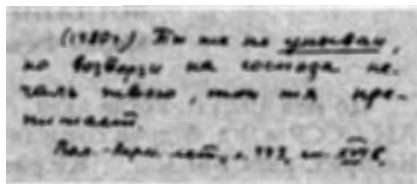 (1780г.) Ты же не унывай,
но возверзи на господа пе-
чаль твою, той тя пре-
питает.
лет., с. 993,